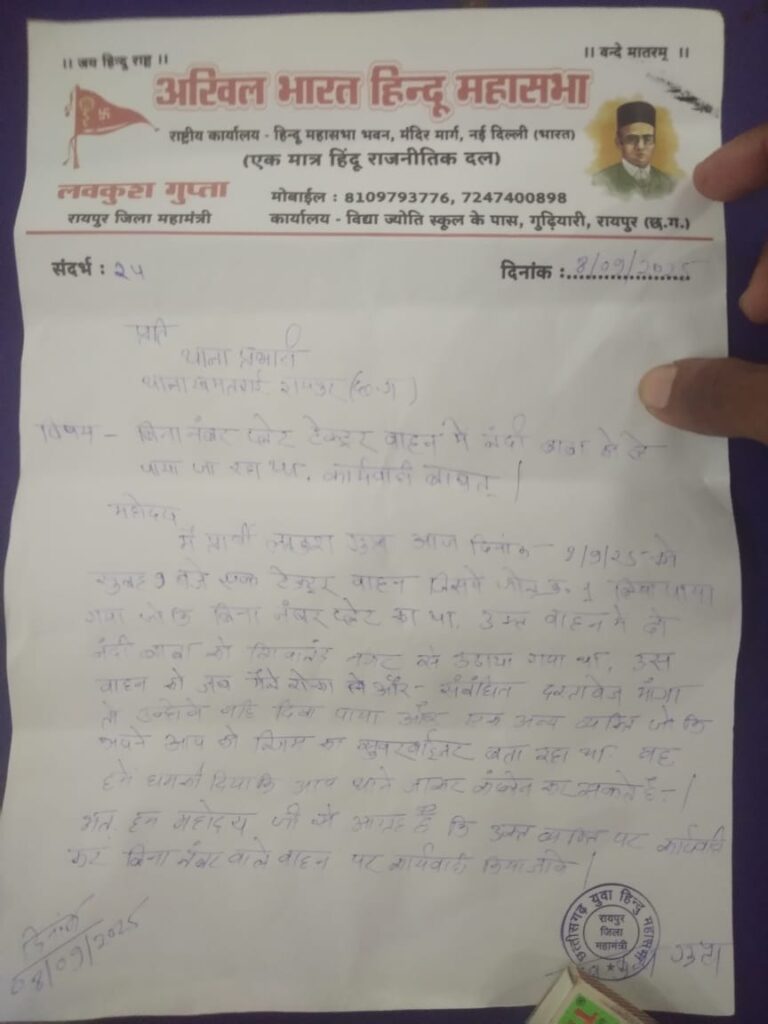 ।। जय हिन्दू राष्ट्र ।।
।। वन्दे मातरम् ।।
अखिल भारत हिन्दू महासभा
राष्ट्रीय कार्यालय - हिन्दू महासभा भवन, मंदिर मार्ग, नई दिल्ली (भारत)
(एक मात्र हिंदू राजनीतिक दल)
लवकुश गुप्ता
रायपुर जिला महामंत्री
मोबाईल : 8109793776, 7247400898
कार्यालय - विद्या ज्योति स्कूल के पास, गुढ़ियारी, रायपुर (छ.ग.)
संदर्भ : २५
दिनांक : 8/09/2025
प्रति
थाना प्रभारी
थाना खमतराई रायपुर (छ.ग)
विषय - बिना नंबर प्लेट टेक्टर वाहन में नंदी बाबा ले
जाया जा रहा था, कार्यवाही बाबत् |
महोदय
मैं प्रार्थी लवकुश गुप्ता आज दिनांक - 9/25 को
सुबह 9 बजे एक टेक्टर वाहन जिसमें जोन क्र. 1 लिखा पाया
गया जो कि बिना नंबर प्लेट का था, उक्त वाहन में दो
नंदी बाबा को नगर से उठाया गया था, उस
वाहन को जब मैंने रोका और - संबंधित दस्तावेज मांगा
तो उन्होंने नहीं दिखा पाया और एक अन्य व्यक्ति जो कि
अपने आप को निगम का सुपरवाईजर बता रहा था वह
हमे धमकी दिया कि आप थाने जाकर कंप्लेन कर सकते है - |
अतः हम महोदय जी से आग्रह है कि उक्त व्यक्ति पर कार्यवाही
कर बिना नंबर वाले वाहन पर कार्यवाही किया जाये |
दिनांक
08/09/2025
छत्तीसगढ़ युवा हिन्दु महासभा
रायपुर
जिला
महामंत्री
गुप्ता